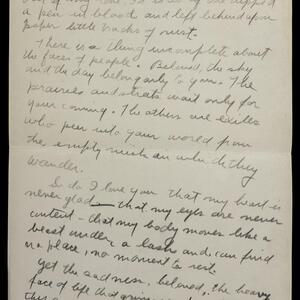 a pen in blood and left behind upon
paper little tracks of rust.
There is a thing incomplete about
the faces of people. Beloved, the sky
and the day belong only to you. The
prairies and streets wait only for
your coming. The others are exiles
who peer into your world from
the empty in which they
wander.
So do I love you that my heart is
never glad — that my eyes are never
content — that my body moves like a
beast under a lash and can find
in a place, no moment to rest.
Yet the sadness, beloved, the heavy
face of life that